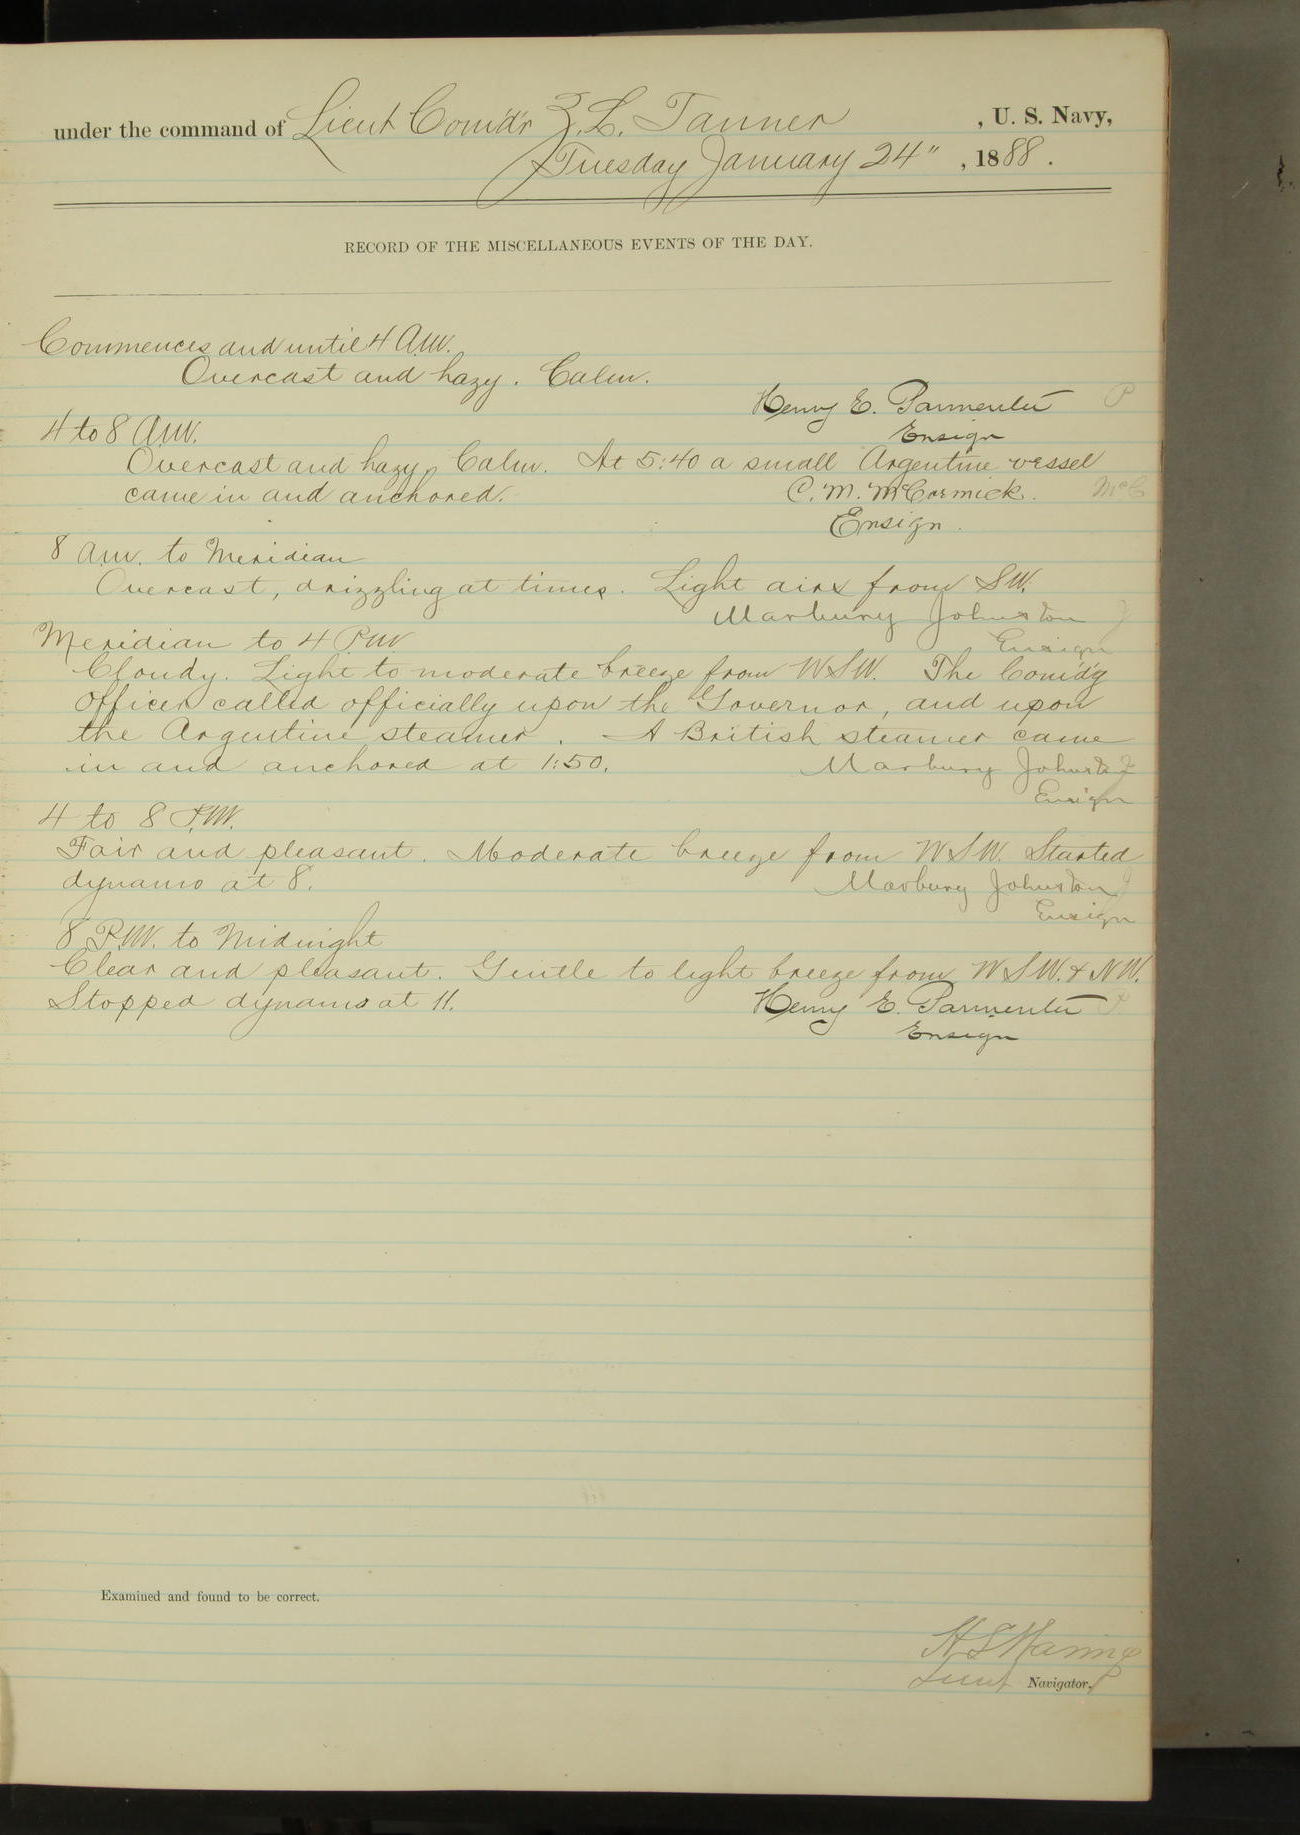 under the command of Lieut Comd'r Z. L. Tanner , U. S. Navy,
Tuesday January 24" , 1888 .
RECORD OF THE MISCELLANEOUS EVENTS OF THE DAY.
Commences and until 4 A.M.
Overcast and hazy. Calm.
Henry E. Parmenter P
Ensign
4 to 8 A.M.
Overcast and hazy, Calm. At 5:40 a small Argentine vessel
came in and anchored. C. M. McCormick. McC
Ensign.
8 A.M. to Meridian
Overcast, drizzling at times. Light airs from SW.
Marbury Johnston J
Ensign
Meridian to 4 P.M
Cloudy. Light to moderate breeze from WSW. The Com'd'g
Officer called officially upon the Governor, and upon
the Argentine steamer. A British steamer came
in and anchored at 1:50. Marbury Johnston J
Ensign
4 to 8 P.M.
Fair and pleasant. Moderate breeze from WSW. Started
dynamo at 8. Marbury Johnston J
Ensign
8 P.M. to Midnight
Clear and pleasant. Gentle to light breeze from WSW. & NW.
Stopped dynamo at 11. Henry E. Parmenter P
Ensign
Examined and found to be correct.
H S Waring
Lieut Navigator.